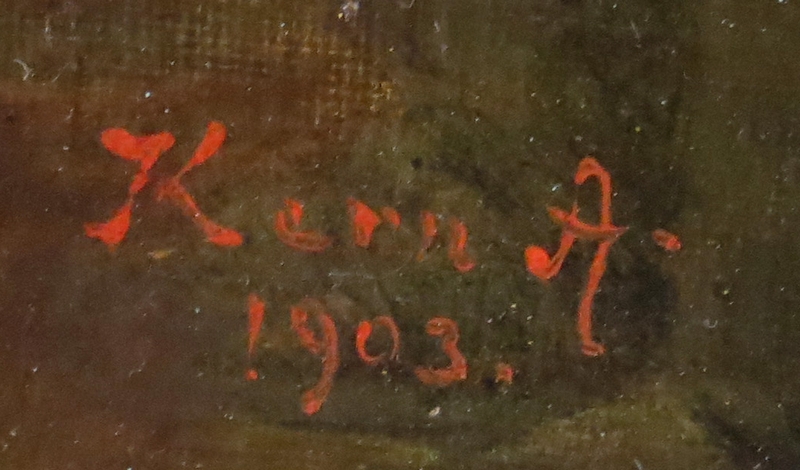 Kern A.
1903.